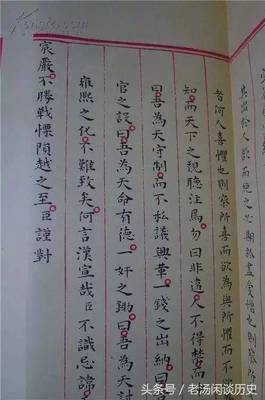 其出余人欲而絕之心期於盡
者何人喜懼也則察所喜而欲為與所懼而不欲
知而天下之視聽注焉勿曰非遠人不得替而
曰吾為天守制而不私議興革一錢之出納曰
官之設曰吾為天命有德一奸之鋤曰吾為天討
雍熙之化不難致矣何言漢宣哉臣不識忌諱
宸嚴不勝戰慄隕越之至臣謹對
头条号/老汤闲谈历史